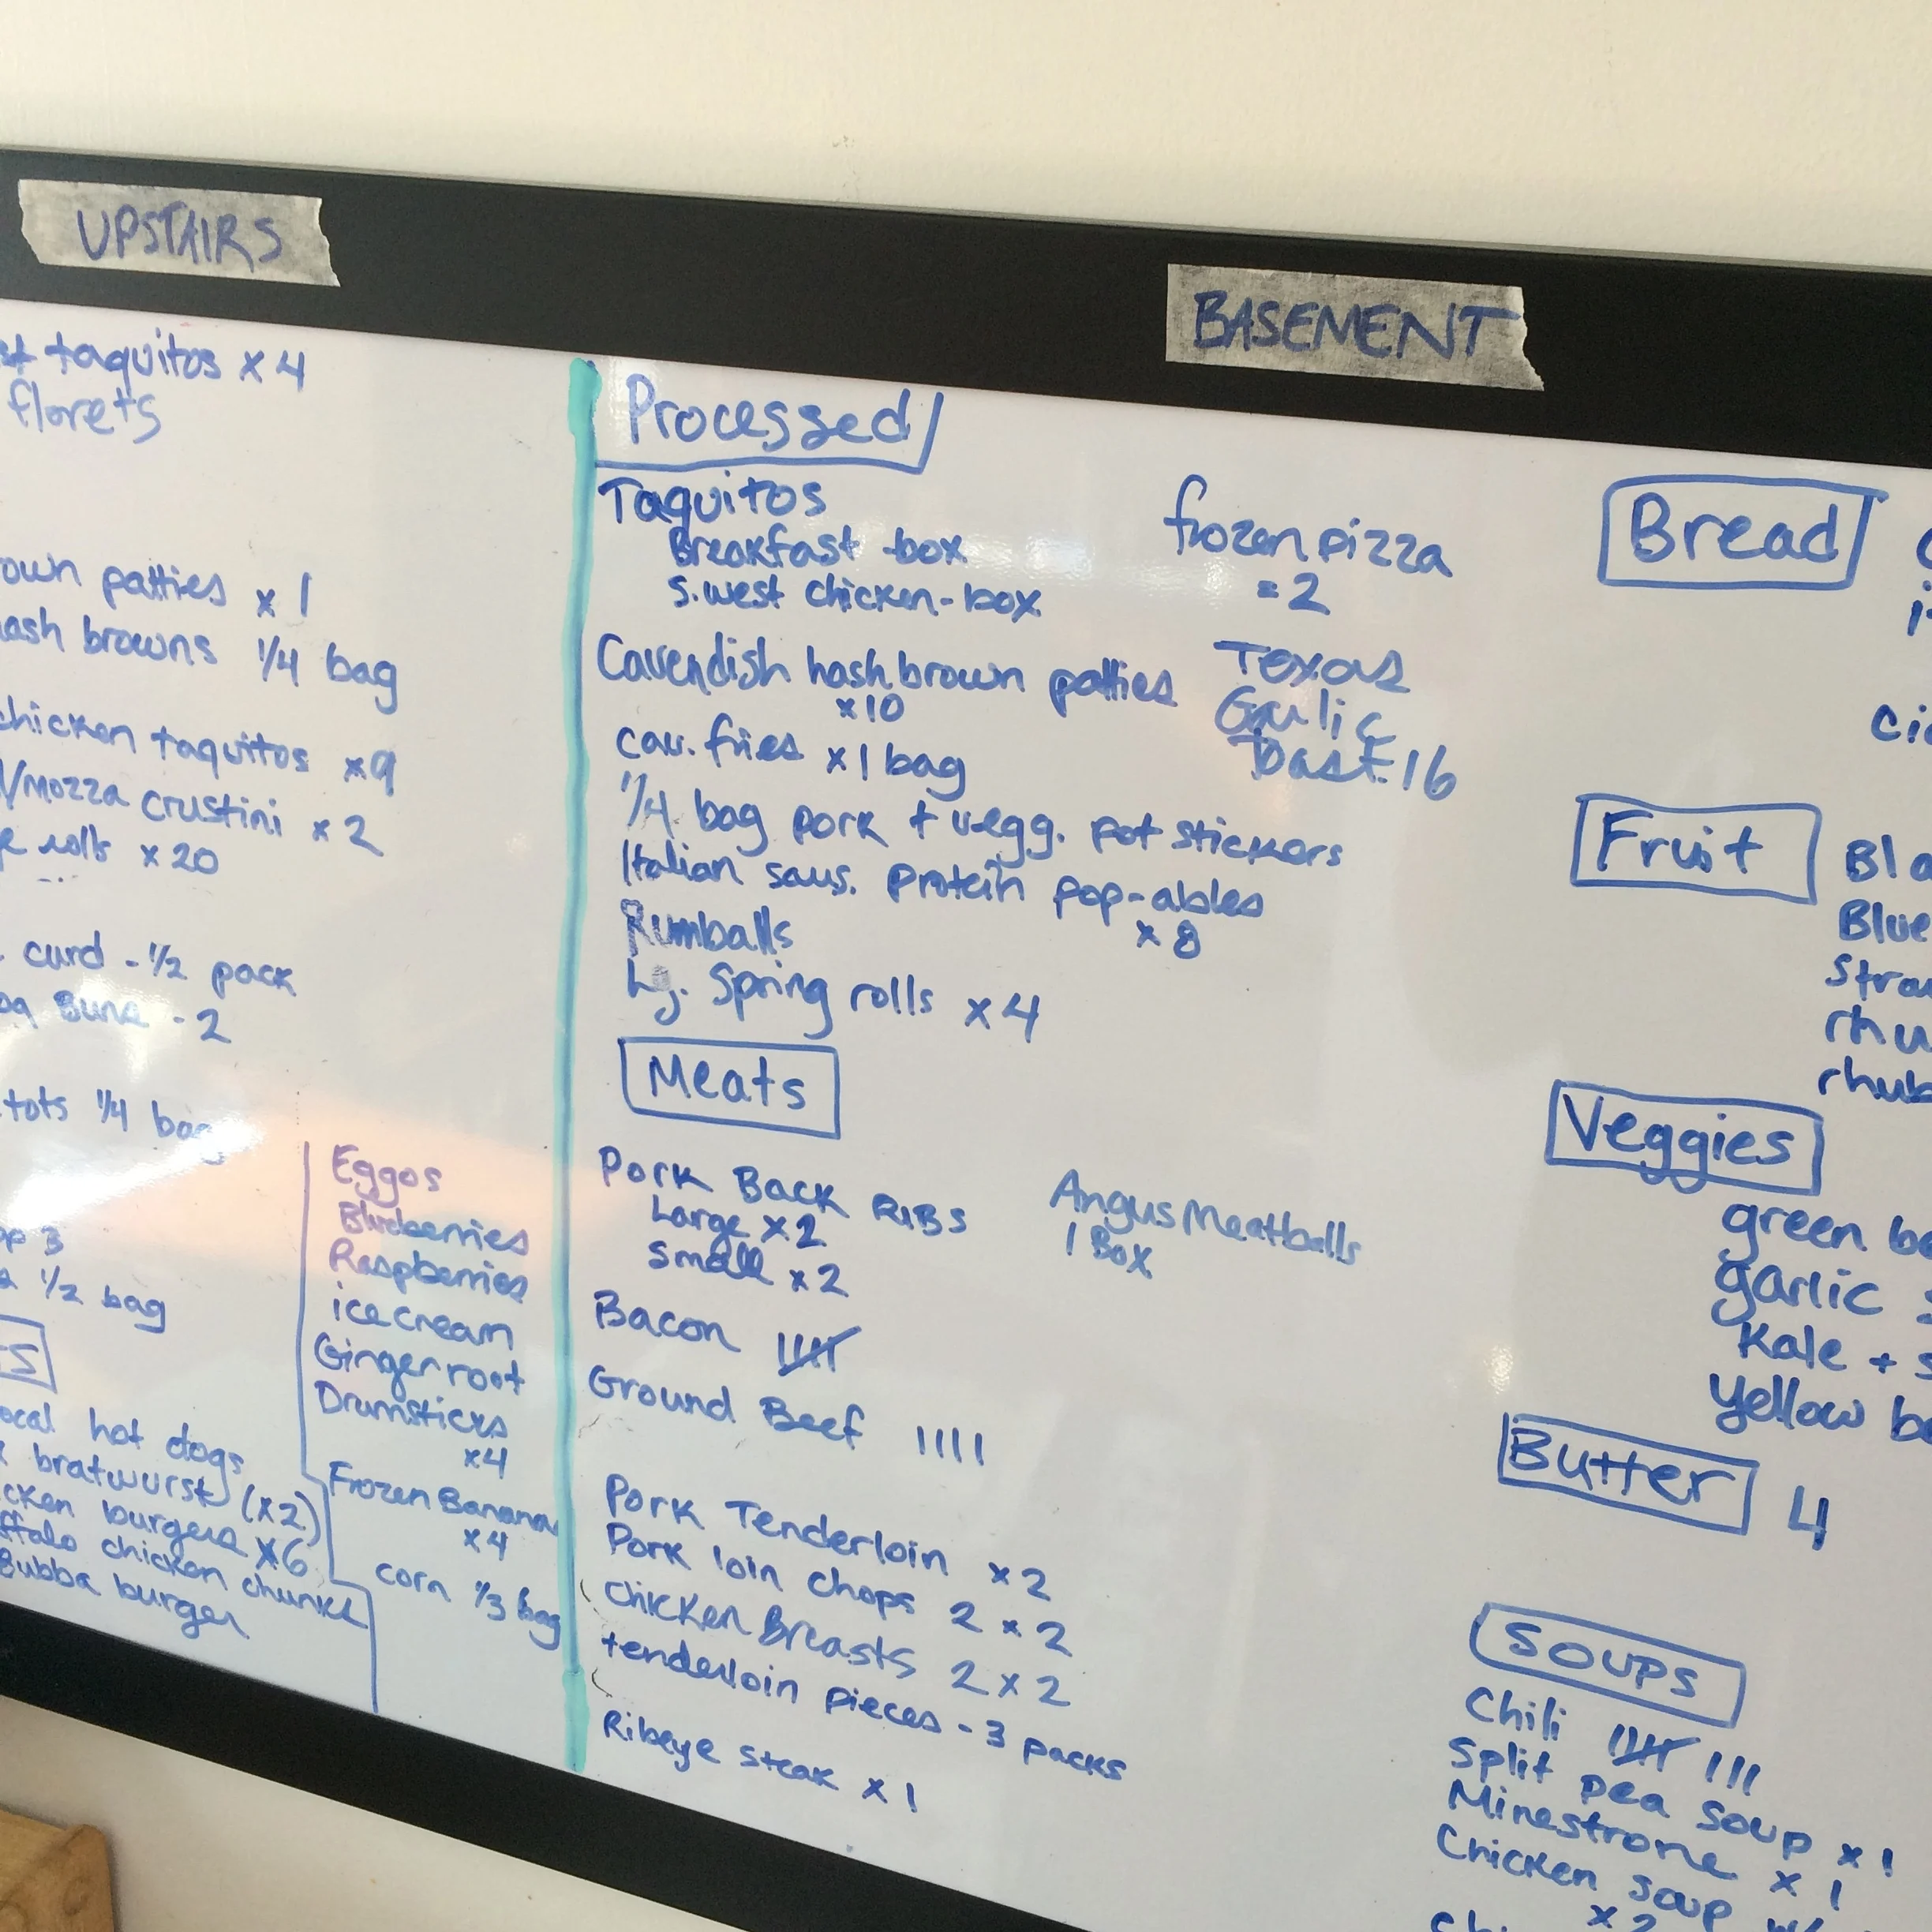 UPSTAIRS
taquitos x 4
florets
patties x 1
browns 1/4 bag
chicken taquitos x9
/mozza crustini x 2
rolls x 20
curd - 1/2 pack
- 2
tots 1/4 bag
3
1/2 bag
hot dogs
bratwurst (x2)
burgers x6
chicken chunks
Bubba burger
Eggos
Blueberries
Raspberries
ice cream
Ginger root
Drumsticks
x4
Frozen Banana
x4
corn 1/3 bag
BASEMENT
Processed
Taquitos
Breakfast - box
S.west chicken - box
Cavendish hashbrown patties
x10
cav. fries x 1 bag
1/4 bag pork + vegg. pot stickers
Italian saus. protein pop-ables
x 8
Rumballs
Lg. Spring rolls x 4
frozen pizza
= 2
Texas
Garlic
Toast 16
Meats
Pork Back RIBS
Large x 2
Small x 2
Angus Meatballs
1 Box
Bacon 卌
Ground Beef ||||
Pork Tenderloin x 2
Pork loin chops 2 x 2
Chicken Breasts 2 x 2
tenderloin pieces - 3 packs
Ribeye steak x 1
Bread
Fruit
Veggies
green
garlic
Kale +
yellow
Butter 4
SOUPS
Chili 卌 |||
Split pea soup x 1
Minestrone x 1
Chicken soup
x 2